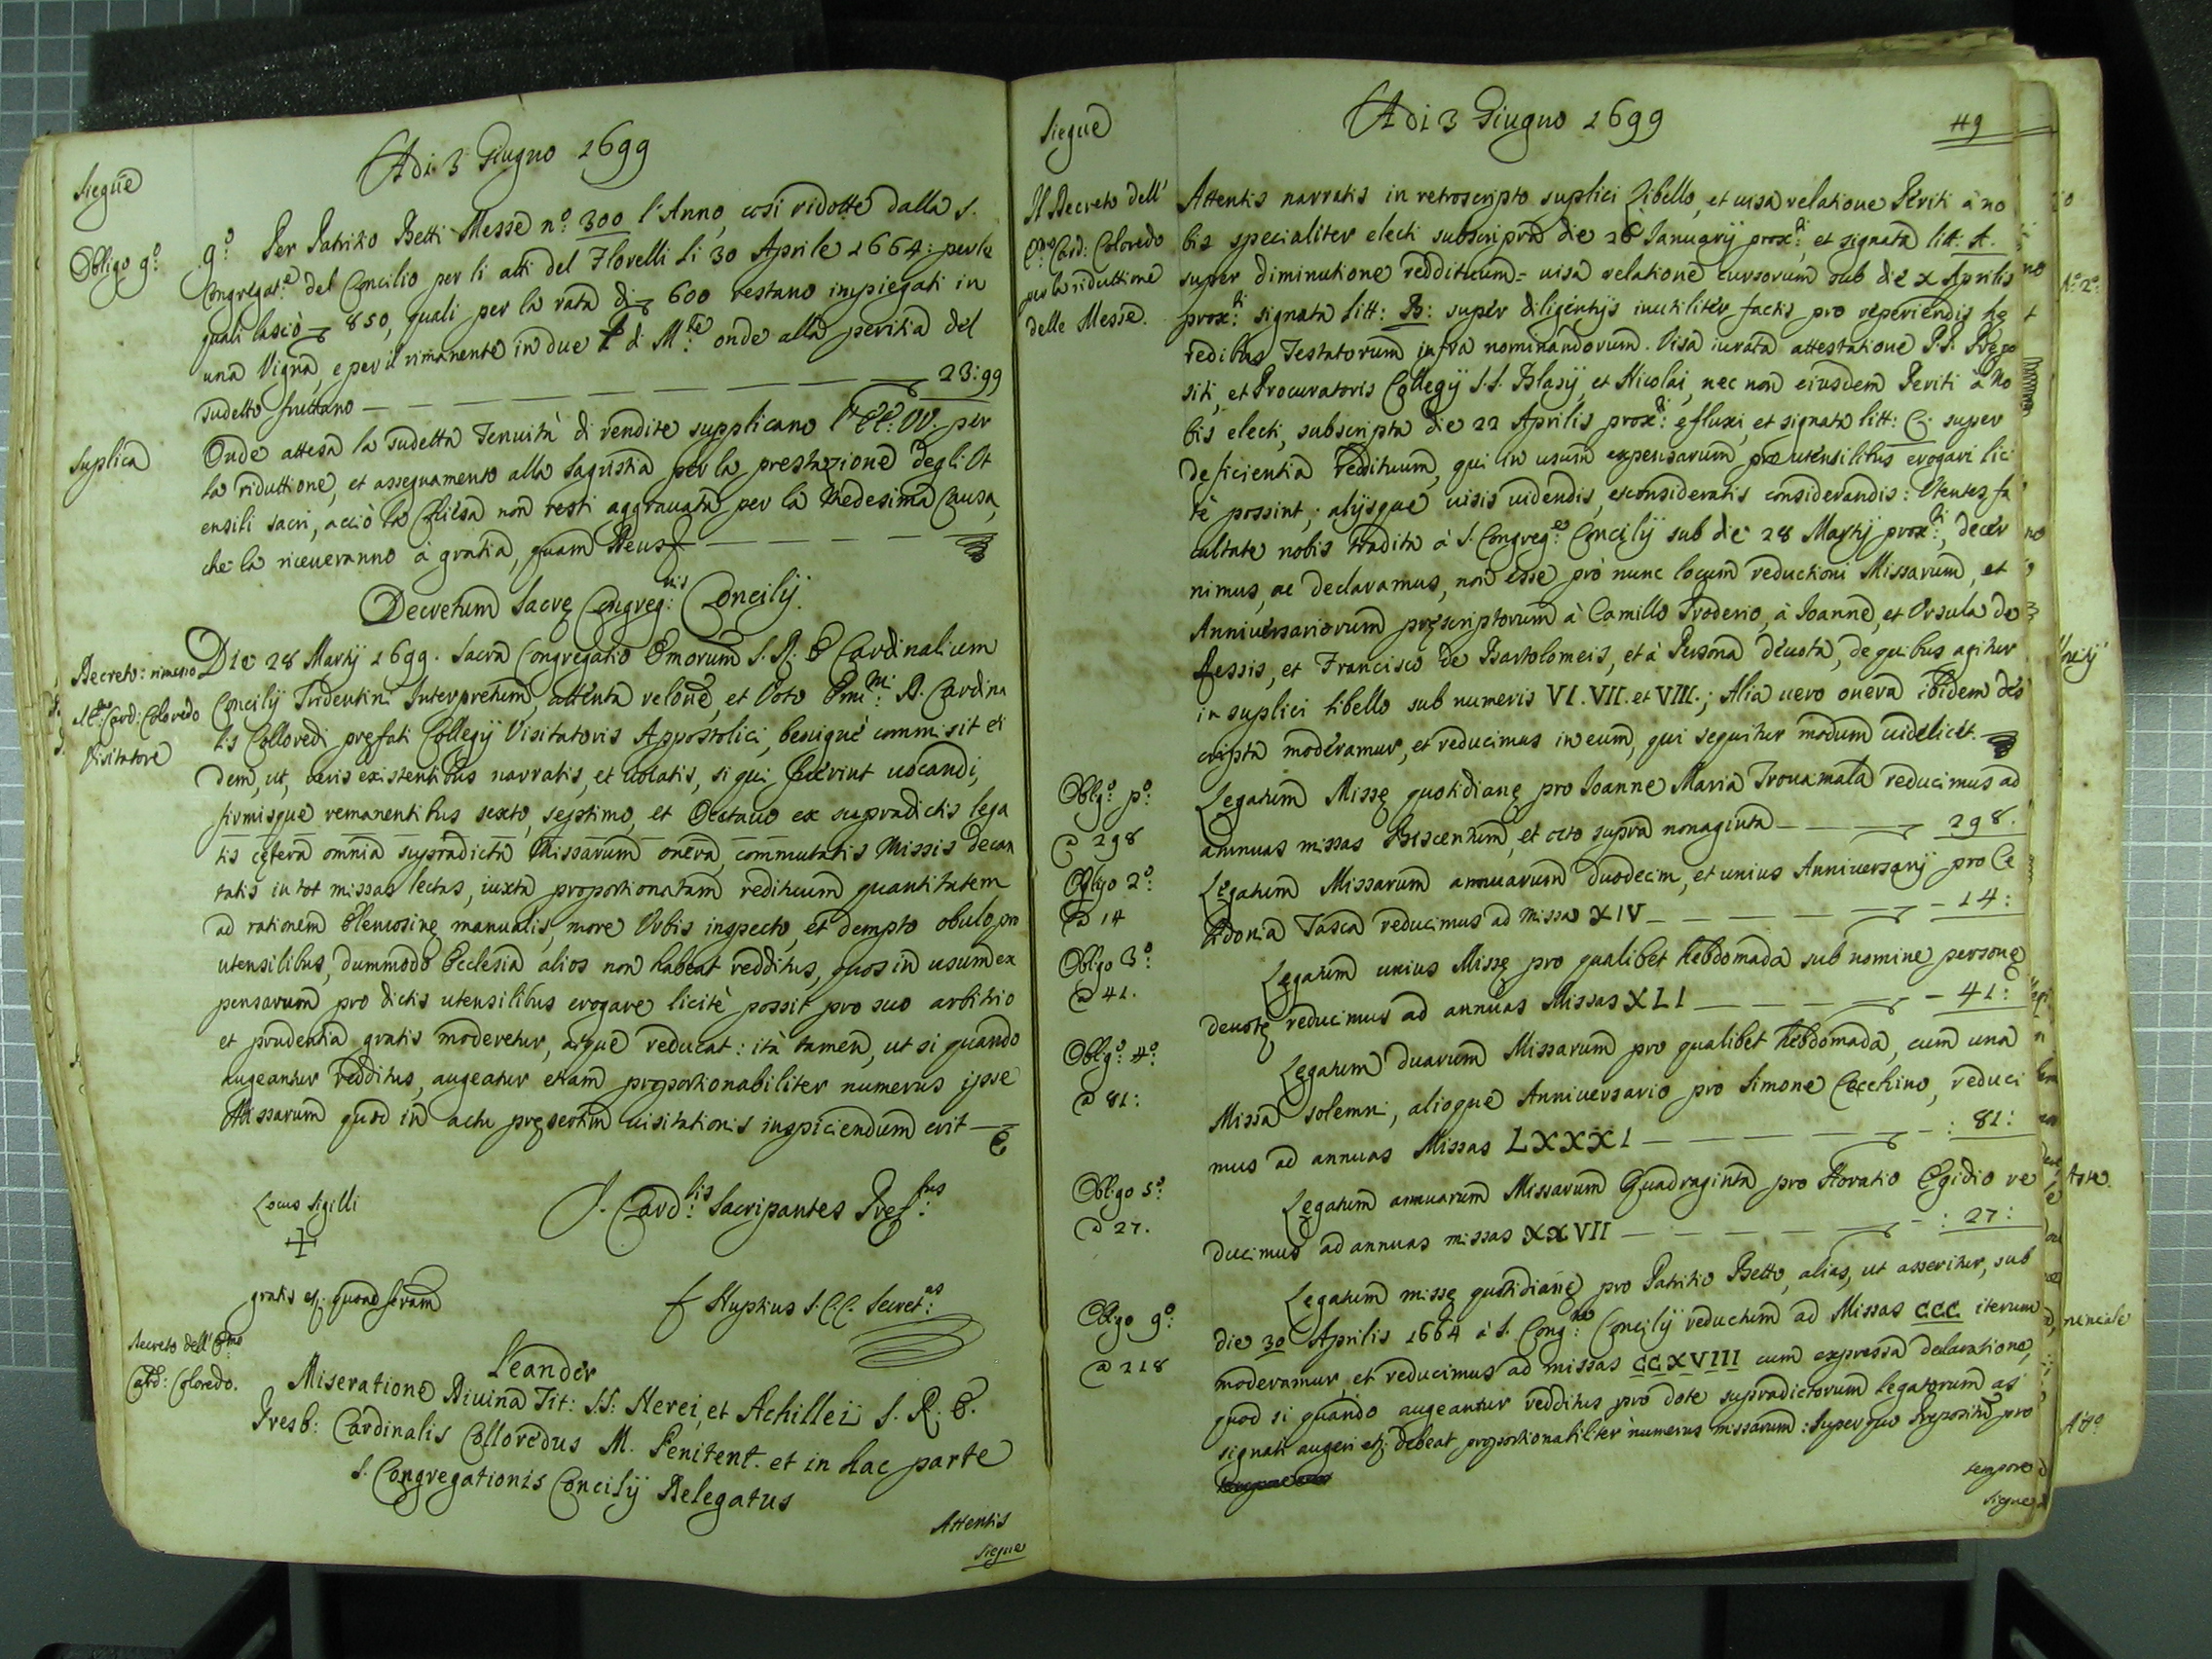 Adi 3 Giugno 1699
Siegue
Obligo 9º:
9º Per Patritio Betti Messe nº: 300 l'Anno, così ridotte dalla S.
Congregat:e del Concilio per li atti del Florelli li 30 Aprile 1664: per le
quali lasciò 850, quali per la rata di 600 restano impiegati in
una Vigna, e per il rimanente in due di M:te onde alla peritia del
sudetto fruttano 23:99
Suplica
Onde attesa la sudetta Tenuità di rendite supplicano l'EE: VV. per
la riduttione, et assegnamento alla Sagristia per la prestazione degli Ut
ensili sacri, acciò la Chiesa non resti aggravata per la Medesima Causa,
che la riceveranno à gratia, quam Deus
Decretum Sacrę Congreg:nis Concilij.
Decreto: rimesso
all' Card: Coloredo
Visitatore
Die 28 Martij 1699. Sacra Congregatio Emorum S. R. E Cardinalium
Concilij Tridentini Interpretum, attenta relõne, et Voto Emi:mi D. Cardina
lis Colloredi pręfati Collegij Visitatoris Appostolici, benignè commisit ei
dem, ut, veris existentibus narratis, et uocatis, si qui fuerint uocandi,
firmisque remanentibus sexto, septimo, et Octauo ex supradictis lega
tis cętera omnia supradicta Missarum onera, commutatis Missis decan
tatis in tot missas lectas, iuxta proportionatam redituum quantitatem
ad rationem Elemosinę manualis, more Urbis inspecto, et dempto obulo pro
utensilibus, dummodo Ecclesia alios non habeat redditus, quos in usum ex
pensarum pro dictis utensilibus erogare licitè possit pro suo arbitrio
et prudentia gratis moderetur, atque reducat: ità tamen, ut si quando
augeantur redditus, augeatur etiam proportionabiliter numerus ipse
Missarum quod in actu pręsertim uisitationis inspiciendum erit
Locus Sigilli
J. Card:lis Sacripantes Pref:tus
gratis et: quoad scram
f Nuptius S. C. C. Secret:us
Decreto dell' E:mo
Card: Coloredo.
Leander
Miseratione Diuina Tit: S.S: Nerei, et Achillei S. R. E.
Presb: Cardinalis Colloredus M. Penitent. et in hac parte
S. Congregationis Concilij Delegatus
Attentis
siegue
Siegue
Adi 3 Giugno 1699
49
Il Decreto dell'
E:mo Card: Coloredo
per la riduttione
delle Messe.
Attentis narratis in retroscripto suplici Libello, et uisa relatione Periti à no
bis specialiter electi subscripta die 26 Ianuarij prox:i et signata litt: A.
super diminutione reddituum= uisa relatione cursorum sub die X Aprilis
prox:i signata litt: B: super diligentijs inutiliter factis pro reperiendis hę
redibus Testatorum infra nominandorum. Visa iurata attestatione P.P. Prępo
siti, et Procuratoris Collegij S.S. Blasij, et Nicolai, nec non eiusdem Periti à No
bis electi, subscripta die 22 Aprilis prox:i efluxi, et signata litt: C: super
deficientia reddituum, qui in usum expensarum pro utensilibus erogari lici
tè possint; alijsque uisis uidendis, et consideratis considerandis: Utentes fa
cultate nobis tradita à S. Congreg:e Concilij sub die 28 Martij prox:i, decer
nimus, ac declaramus, non esse prò nunc locum reductioni Missarum, et
Anniuersariorum pręscriptorum à Camillo Proderio, à Ioanne, et Ursula de
Fessis, et Francisco de Bartolomeis, et à Persona deuota, de quibus agitur
in suplici libello sub numeris VI. VII. et VIII.; Alia uero onera ibidem des
cripta moderamur, et reducimus in eum, qui sequitur modum uidelicet.
Oblig:º pº:
a 298
Legatum Missę quotidianę pro Ioanne Maria Trouamala reducimus ad
annuas missas Biscentum, et octo supra nonaginta 298.
Obligo 2º:
a 14
Legatum Missarum annuarum duodecim, et unius Anniuersarij pro Ce
lidonia Tasca reducimus ad missas XIV 14:
Obligo 3º:
a 41.
Legatum unius Missę pro qualibet hebdomada sub nomine personę
deuotę reducimus ad annuas Missas XLI 41:
Oblig:º 4º:
a 81:
Legatum duarum Missarum pro qualibet hebdomada, cum una
Missa solemni, alioque Anniuersario pro Simone Cecchino, reduci
mus ad annuas Missas LXXXI 81:
Obligo 5º:
a 27.
Legatum annuarum Missarum Quadraginta pro Horatio Egidio re
ducimus ad annuas missas XXVII 27:
Obligo 9º:
a 218
Legatum missę quotidianę pro Patritio Betto, alias, ut asseritur, sub
die 30 Aprilis 1664 à S. Cong:ne Concilij reductum ad Missas CCC iterum
moderamur, et reducimus ad missas CCXVIII cum expressa declaratione,
quod si quando augeantur redditus pro dote supradictorum legatorum as
signati augeri et: debeat proportionabiliter numerus missarum: Super quo Prępositus pro
tempore
siegue